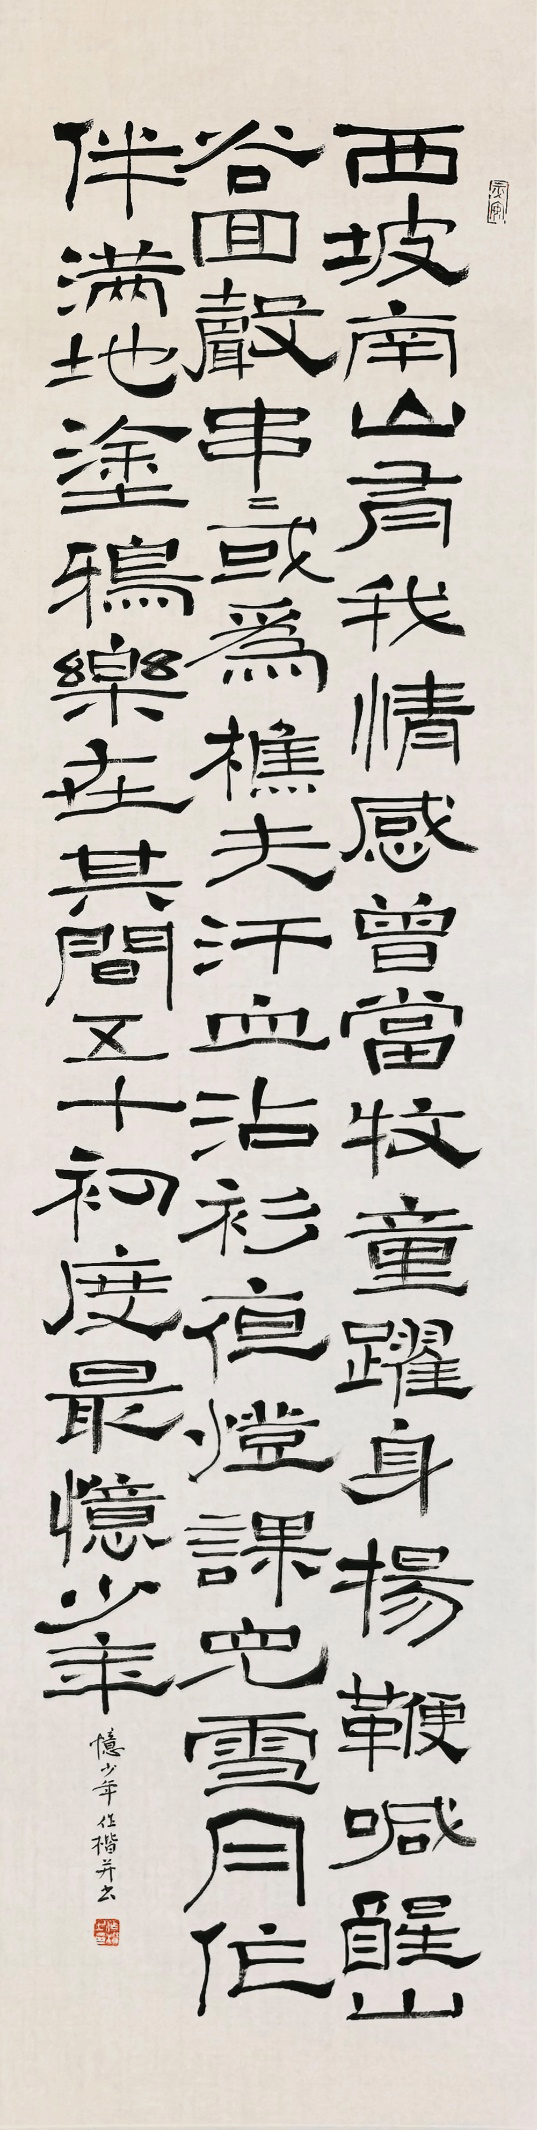 西坡南山有我情感曾當牧童躍身揚鞭喊醒山
谷回聲串〻或爲樵夫汗血沾衫夜燈課兒雪月作
伴滿地塗鴉樂在其間五十初度最憶少年
憶少年 任楷并书